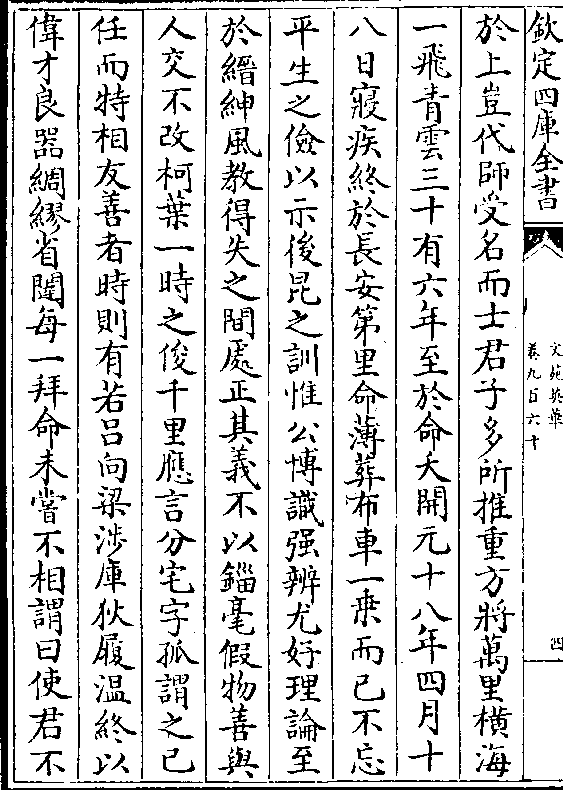 欽定四庫全書
文苑英華
卷九百六十
四
於上豈代師受名而士君子多所推重方將萬里橫海
一飛青雲三十有六年至於命夭開元十八年四月十
八日寢疾終於長安第里命薄葬布車一乗而已不忘
平生之儉以示後昆之訓惟公博識强辨尤好理論至
於縉紳風教得失之間處正其義不以錙毫假物善與
人交不改柯葉一時之俊千里應言分宅字孤謂之已
任而特相友善者時則有若吕向梁渉庫狄履温終以
偉才良器綢繆省闥每一拜命未嘗不相謂曰使君不